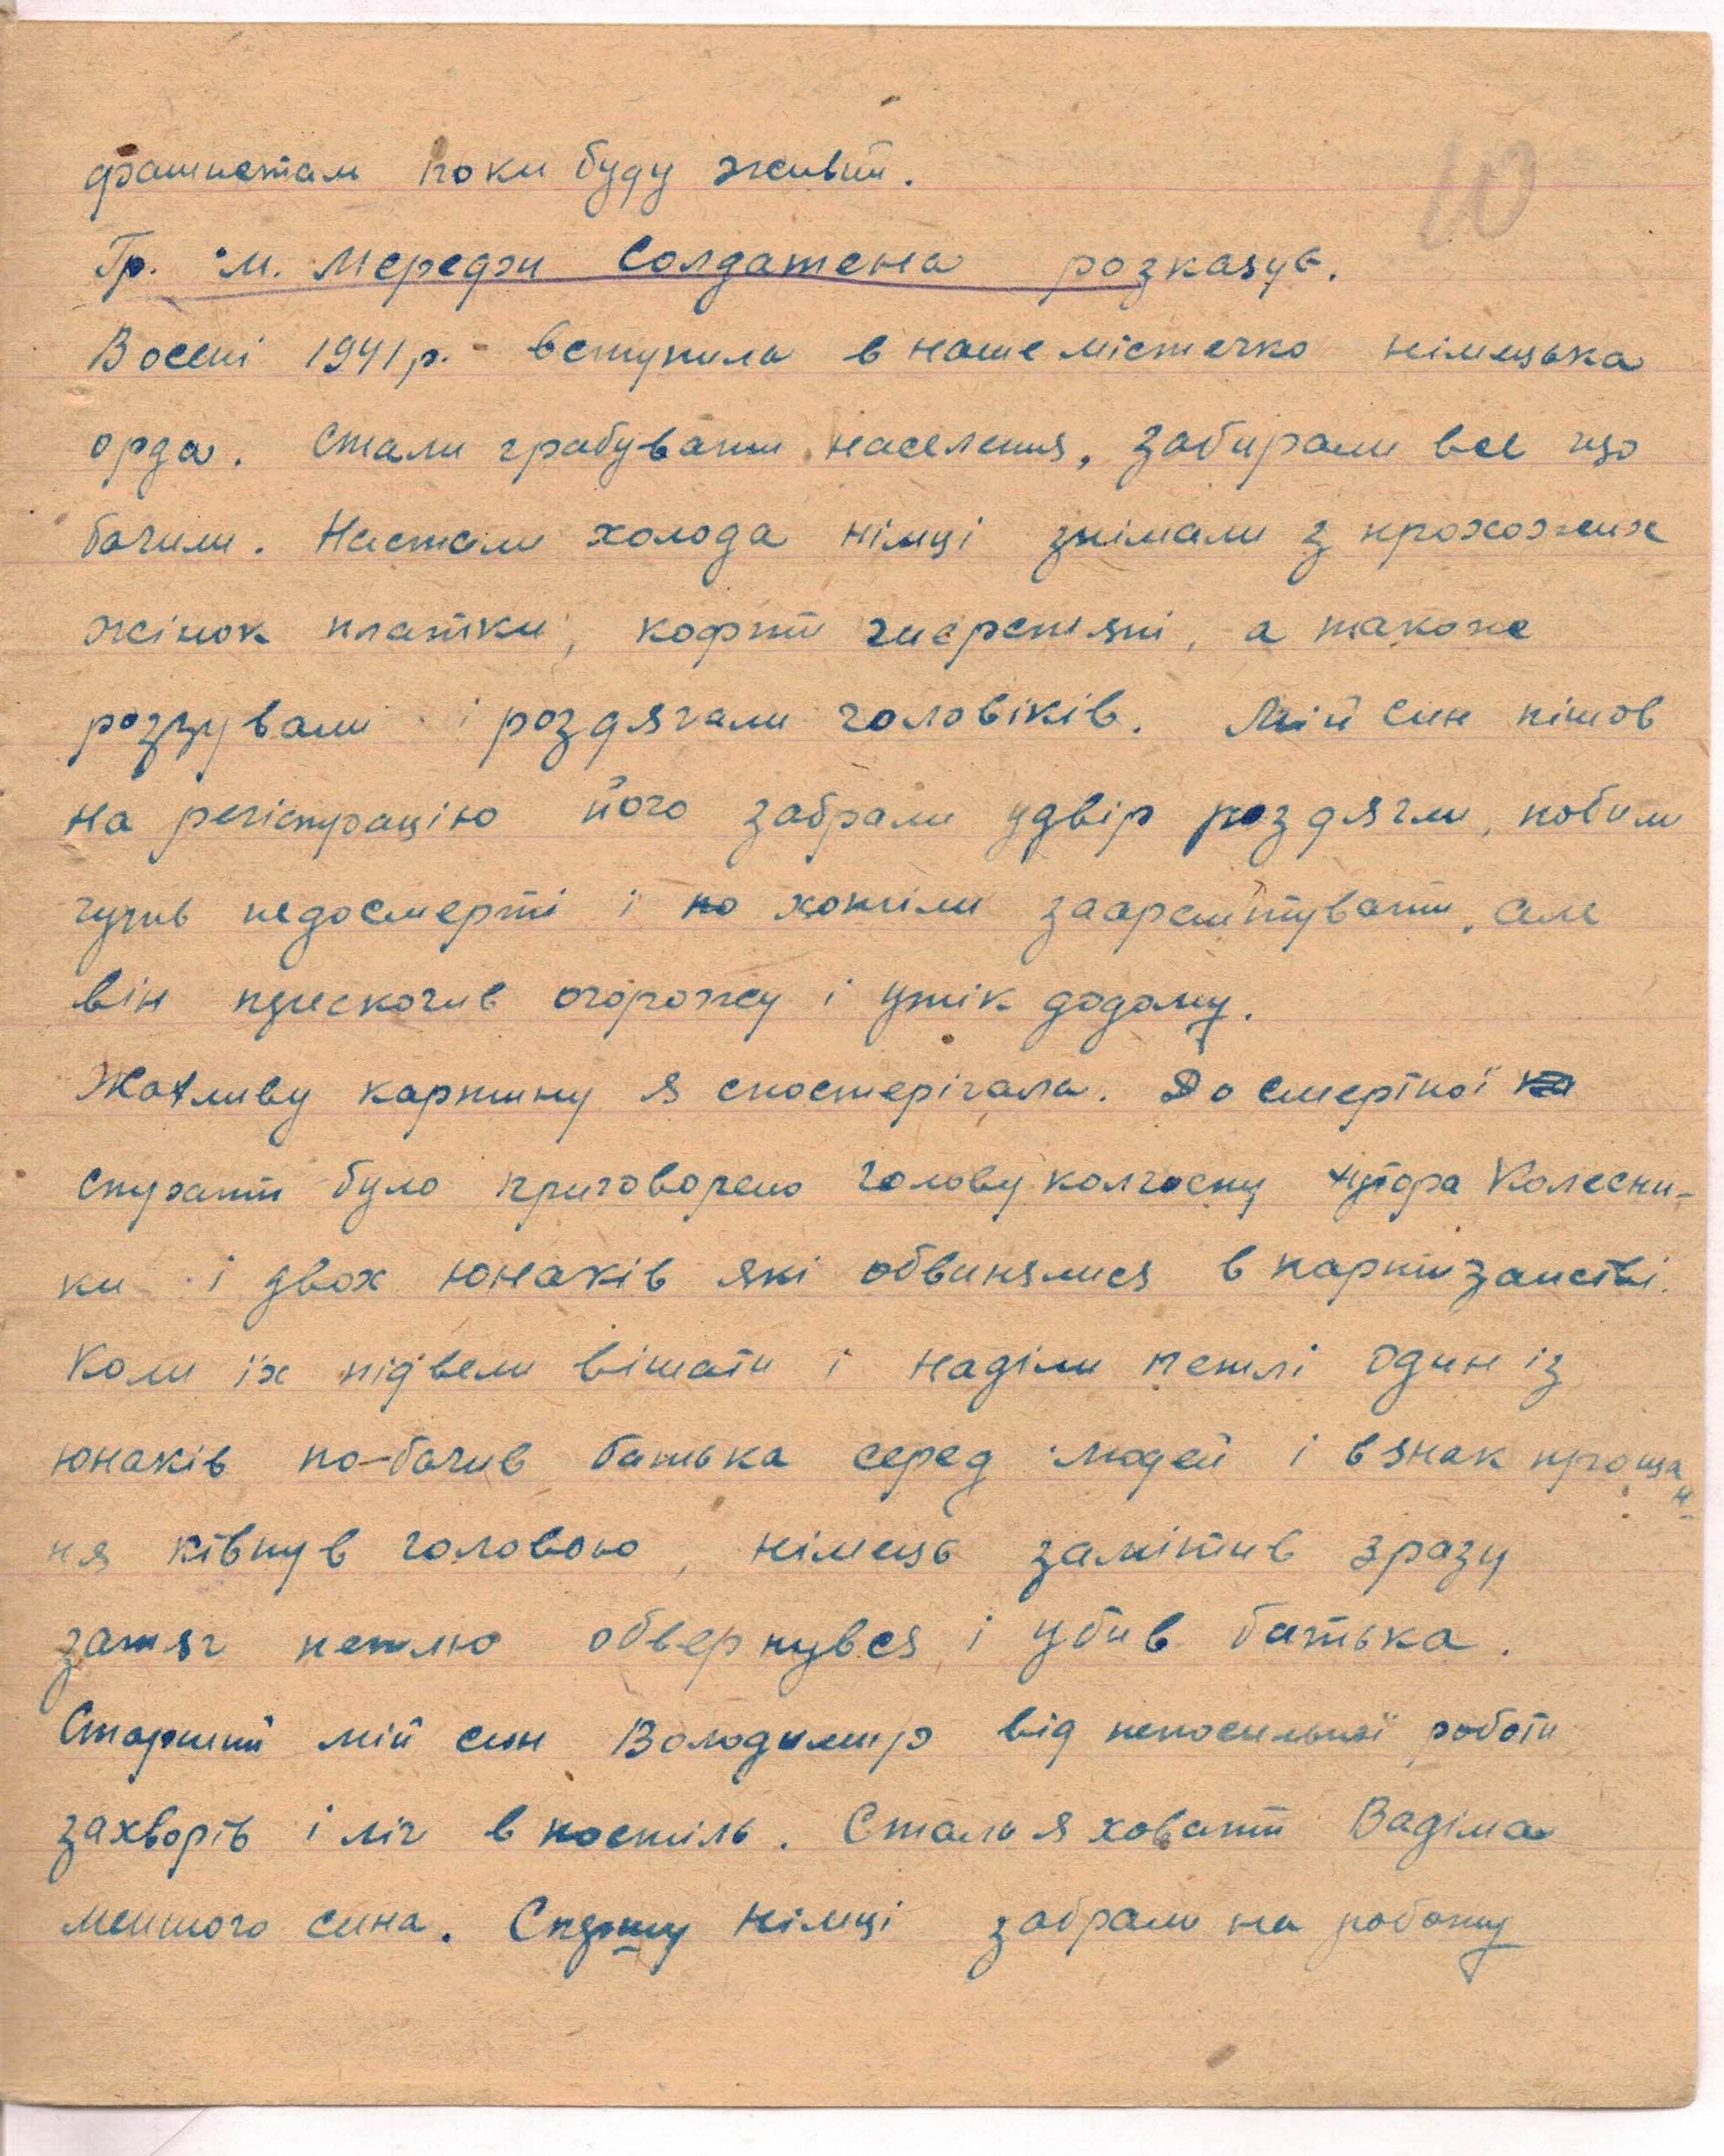 10
фашистам поки буду живий.
Гр. м. Мерефи Солдатена розказує.
Восені 1941р. вступила в наше містечко німецька
орда. Стали грабувати населення, забирали все що
бачили. Настали холода німці знімали з прохожих
жінок платки, кофти шерстяні, а також
роззували і роздягали чоловіків. Мій син пішов
на регістрацію його забрали удвір роздягли, побили
чуть недосмерті і хотіли заарештувати, але
він перескочив огорожу і утік додому.
Жахливу картину я спостерігала. До смертної
страти було приговорено голову колгоспу хутора Колесни-
ки і двох юнаків які обвинялися в партизанстві.
Коли їх підвели вішати і наділи петлі один із
юнаків по-бачив батька серед людей і взнак прощан-
ня ківнув головою, німець замітив зразу
затяг петлю обвернувся і убив батька.
Старший мій син Володимир від непосильної роботи
захворів і ліг в постіль. Стала я ховати Вадіма
меншого сина. Німці забрали на роботу